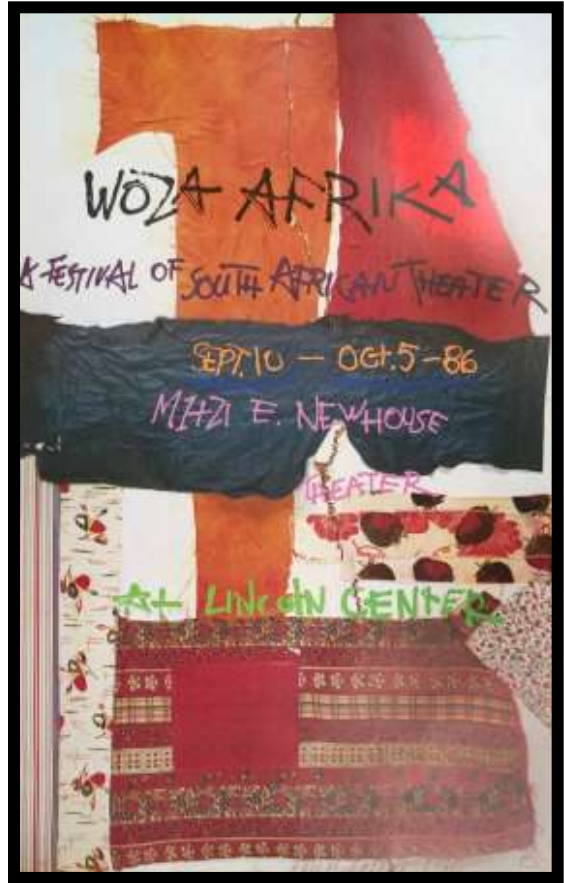 WOZA AFRIKA
A FESTIVAL OF SOUTH AFRICAN THEATER
SEPT. 10 — OCT. 5 - 86
MITZI E. NEWHOUSE
THEATER
At LINCOLN CENTER.